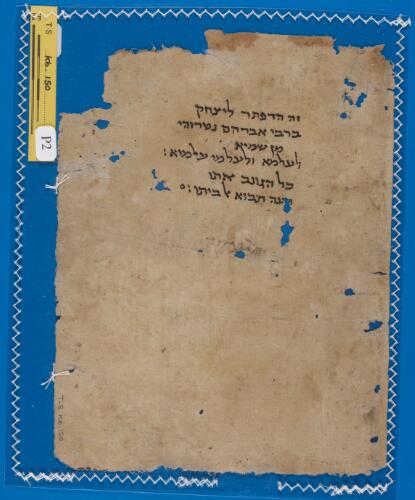 T-S
K6.150
P2
זה הדפתר ליצחק
ברבי אברהם נטרוהי
מן שמיא
לעלמא ולעלמי עלמיא :
כל הגונב אתו
תבוא לביתו :
T-S K6 150